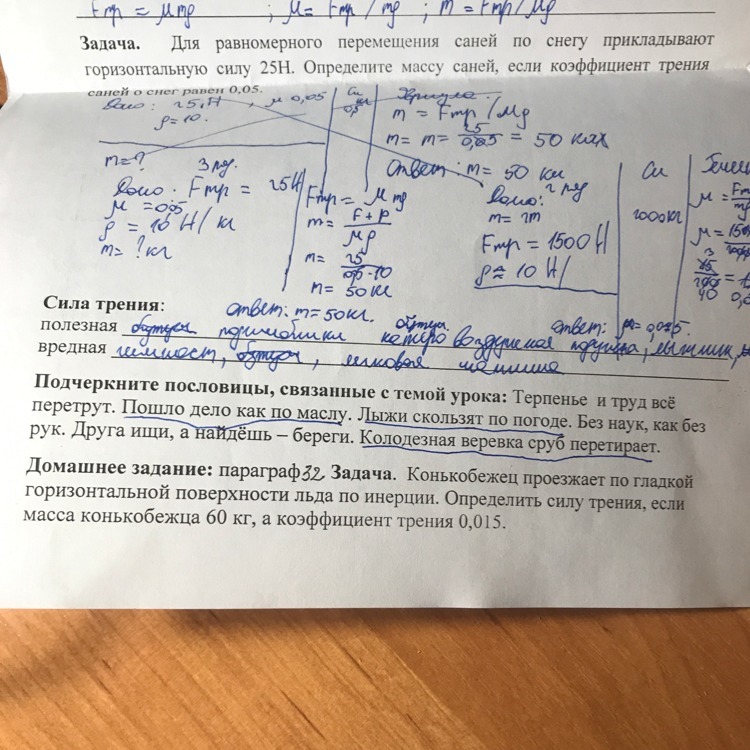 Fтр = μmg ; μ = Fтр / mg ; m = Fтр / μg
Задача. Для равномерного перемещения саней по снегу прикладывают
горизонтальную силу 25Н. Определите массу саней, если коэффициент трения
саней о снег равен 0,05.
Дано: 25 Н, μ 0,05
g = 10.
m = ?
Си
кг
Формула
m = Fтр / μg
m = m = 25 / 0,05 = 50
Ответ: m = 50 кг
3 ряд.
Дано: Fтр = 25 Н
μ = 0,05
g = 10 Н/кг
m = ? кг
Fтр = μmg
m = Fтр / μg
m = 25 / 0,5 · 10
m = 50 кг
ответ: m = 50 кг.
2 ряд
Дано:
m = 2т
Fтр = 1500 Н
g ≈ 10 Н/
Си
2000 кг
μ = Fт
mg
μ = 150
ответ: μ = 0,075.
Сила трения:
полезная подшипники катера воздушная подушка, лыжник,
вредная
Подчеркните пословицы, связанные с темой урока: Терпенье и труд всё
перетрут. Пошло дело как по маслу. Лыжи скользят по погоде. Без наук, как без
рук. Друга ищи, а найдёшь – береги. Колодезная веревка сруб перетирает.
Домашнее задание: параграф 32 Задача. Конькобежец проезжает по гладкой
горизонтальной поверхности льда по инерции. Определить силу трения, если
масса конькобежца 60 кг, а коэффициент трения 0,015.